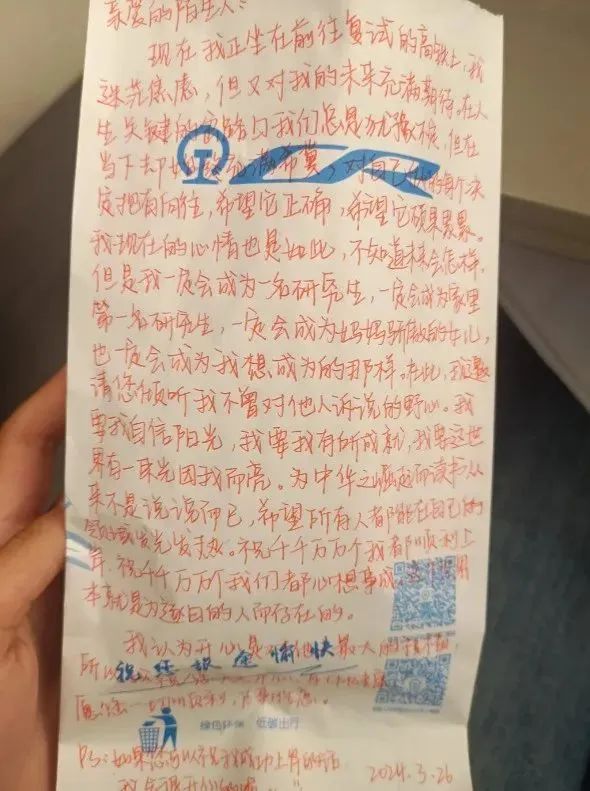 亲爱的陌生人:
现在我正坐在前往复试的高铁上,我
迷茫焦虑,但又对我的未来充满期待。在人
生关键的 我们总是犹豫不决,但在
当下却 满希冀,对自己 的每个决
定抱有向往,希望它正确,希望它硕果累累。
我现在的心情也是如此,不知道未来会怎样,
但是我一定会成为一名研究生,一定会成为家里
第一名研究生,一定会成为妈妈骄傲的女儿,
也一定会成为我想成为的那样。在此,我邀
请您倾听我不曾对他人诉说的野心。我
要我自信阳光,我要我有所成就,我要这世
界有一束光因我而亮。为中华之崛起而读书从
来不是说说而已,希望所有人都能在自己的
领域发光发热。祝千千万万个我都顺利上
岸,祝千千万万个我们都心想事成,
本就是为逐日的人而存在的。
我认为开心是 最大的
所以祝
祝您旅途愉快
愿您一切顺利,
绿色环保 低碳出行
PS:如果您 我成功上岸的话
我会很开心的
2024.3.26